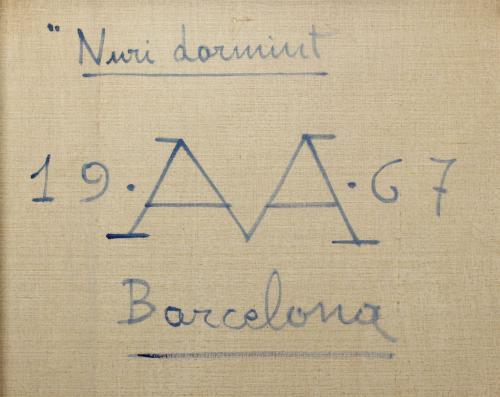 "Nuri dormint
19·AA·67
Barcelona